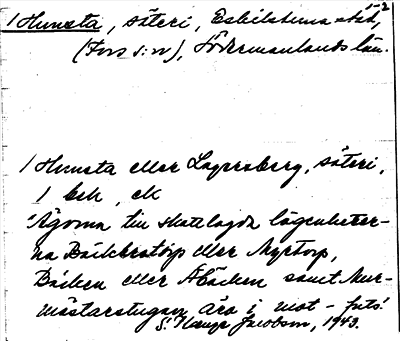 1 Hunsta, säteri, Eskilstuna stad, 1-2
(Fors s:n), Södermanlands län.
1 Hunsta eller Lagersberg, säteri,
1 bsk, ek
"Ägorna till skattlagda lägenheter-
na Bäckbrotorp eller Myrtorp,
Bäcken eller Åbäcken samt Mur-
mästarstugan äro i mot-
S. Hauge Jacobson, 1943.